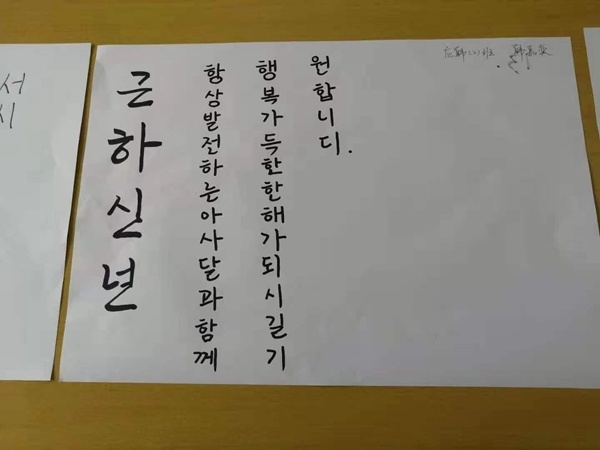 서
시
근하신년
항상발전하는아사달과함께
행복가득한한해가되시길기
원합니디.